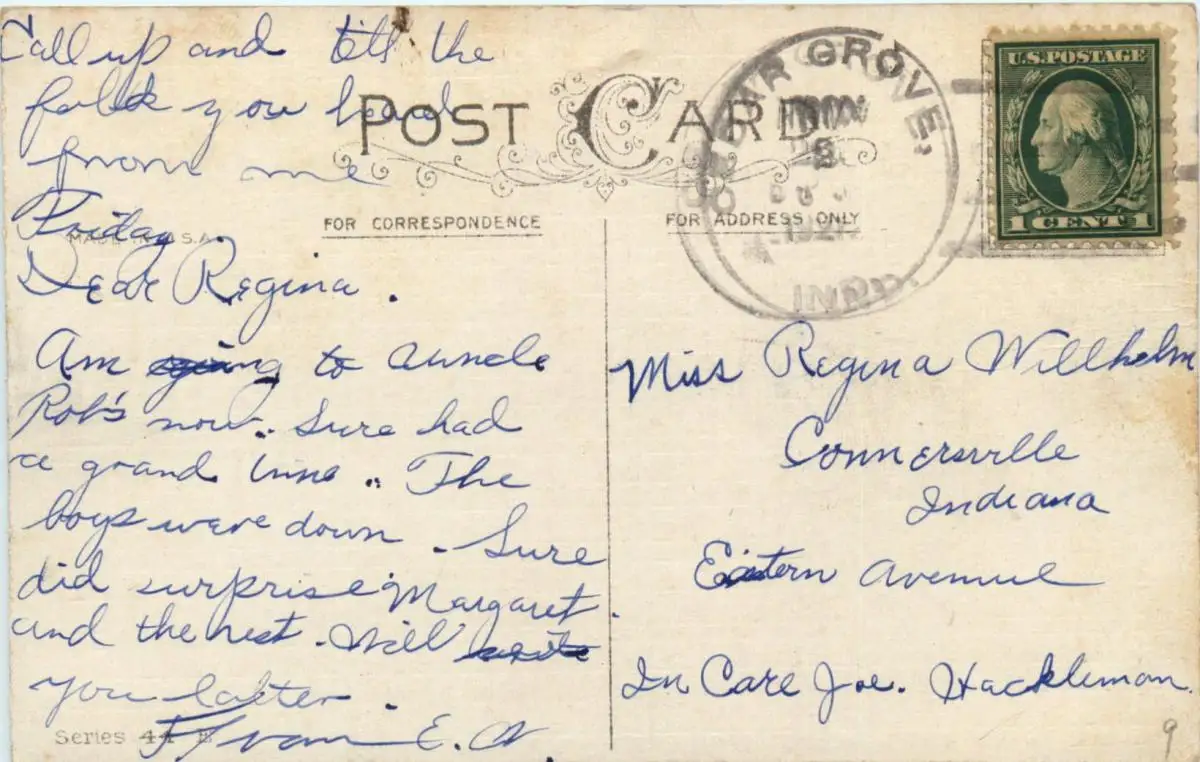 Call up and tell the
folks you heard
from me
Friday
MADE IN U.S.A.
Dear Regina.
Am going to Auncle
Rob's now. Sure had
a grand time. The
boys were down. Sure
did surprise Margaret.
and the rest. Will write
you latter.
E.
Series 44 B
POST CARD
FOR CORRESPONDENCE
FOR ADDRESS ONLY
CEDAR GROVE,
NOV
IND.
U.S. POSTAGE
1 CENT 1
Miss Regina Willhelm
Connersville
Indiana
Eastern Avenue
In Care Joe. Hackleman
9